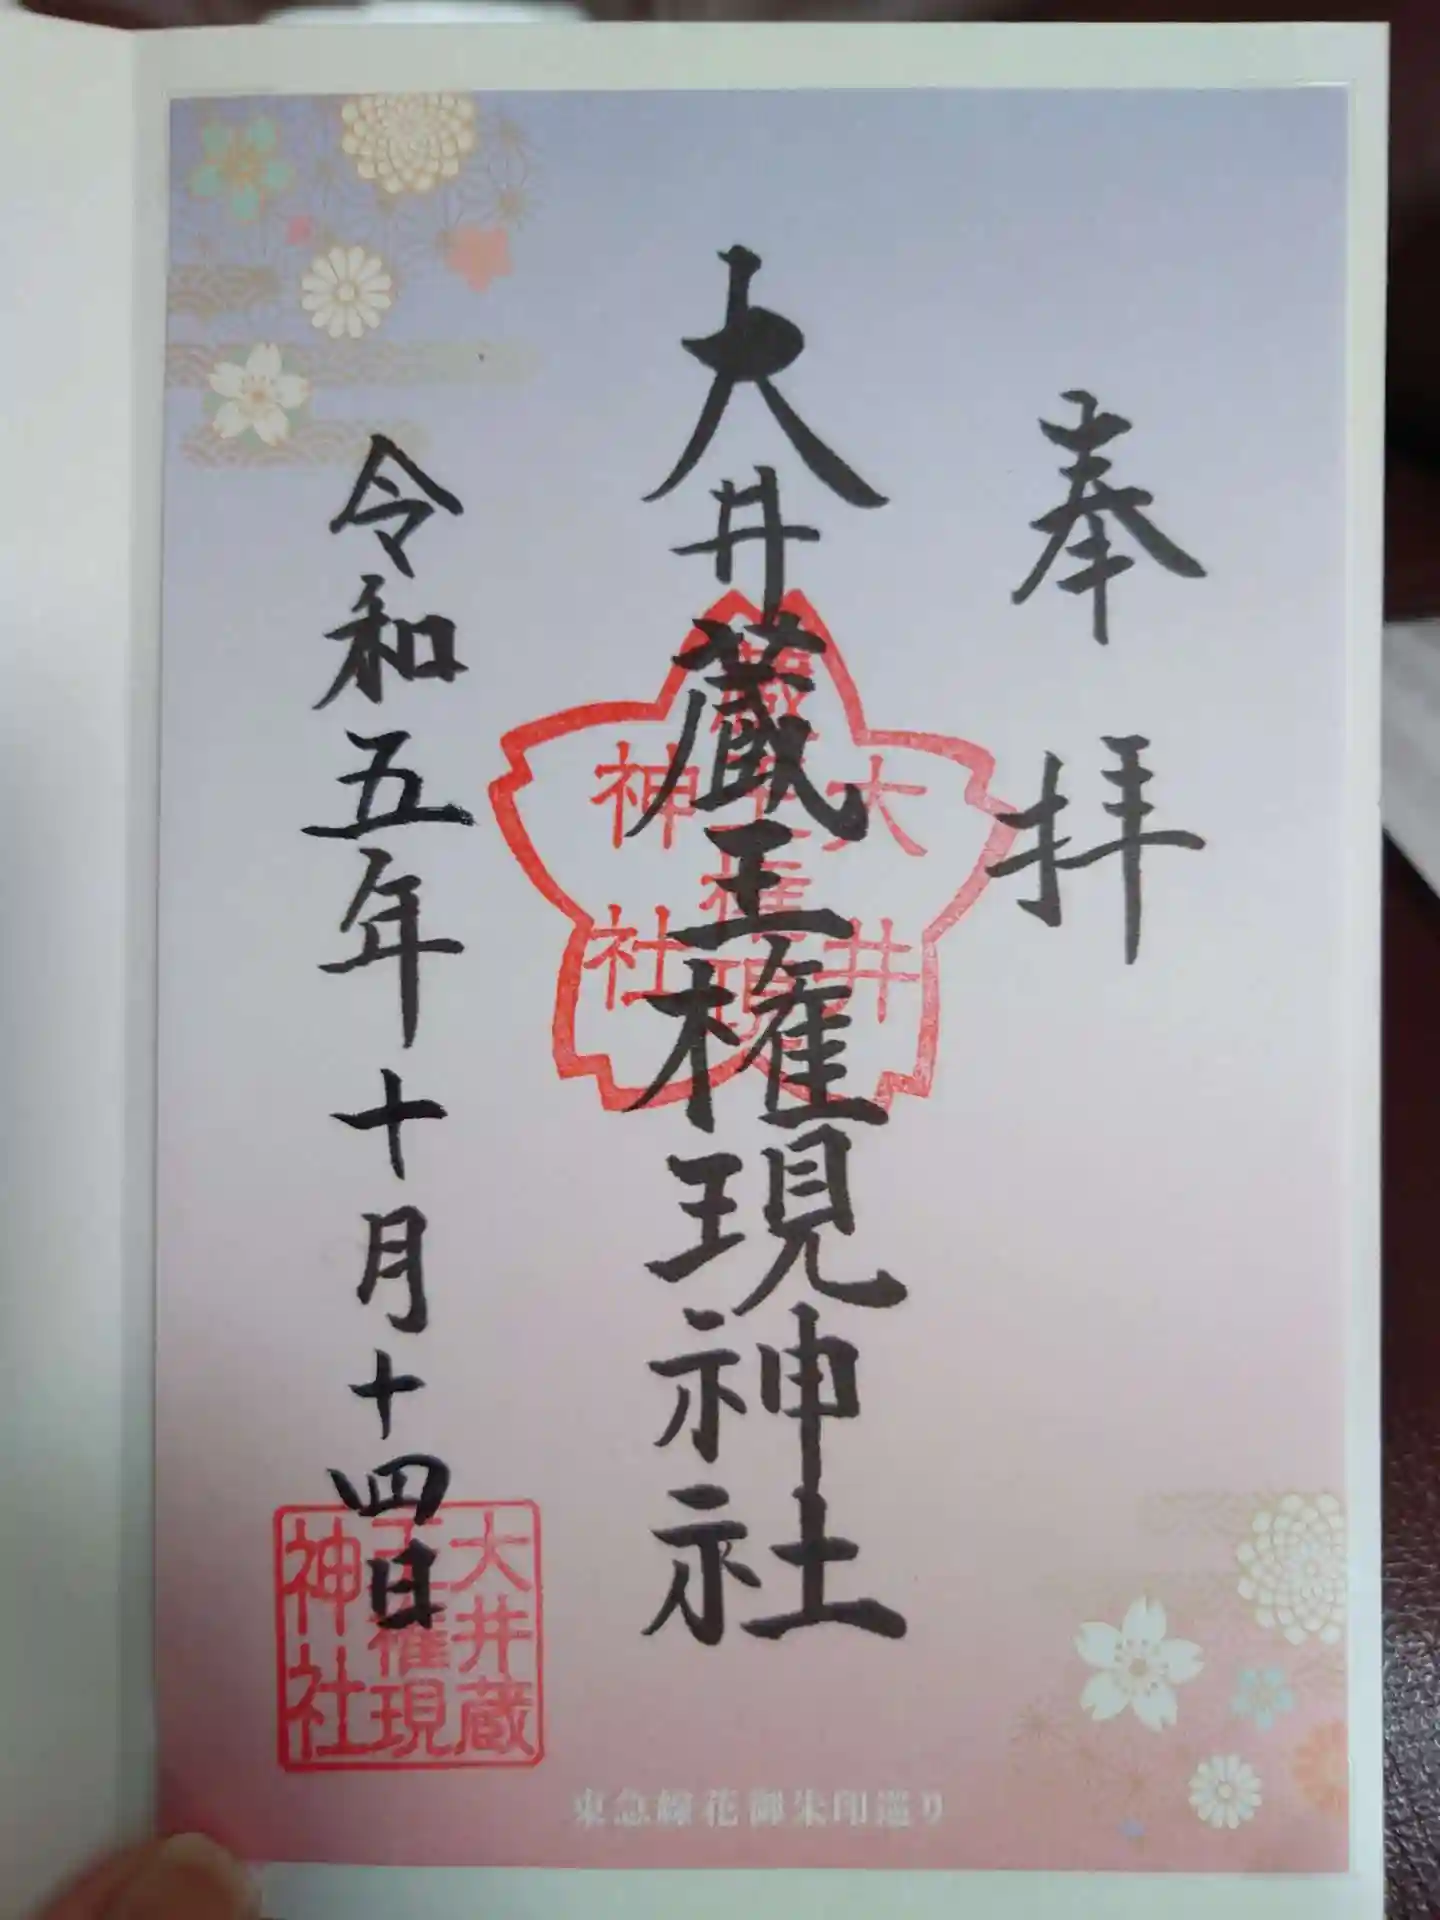 奉拝
大井蔵王権現神社
大井
蔵王権現
神社
令和五年十月十四日
大井蔵
王権現
神社
東急線花御朱印巡り